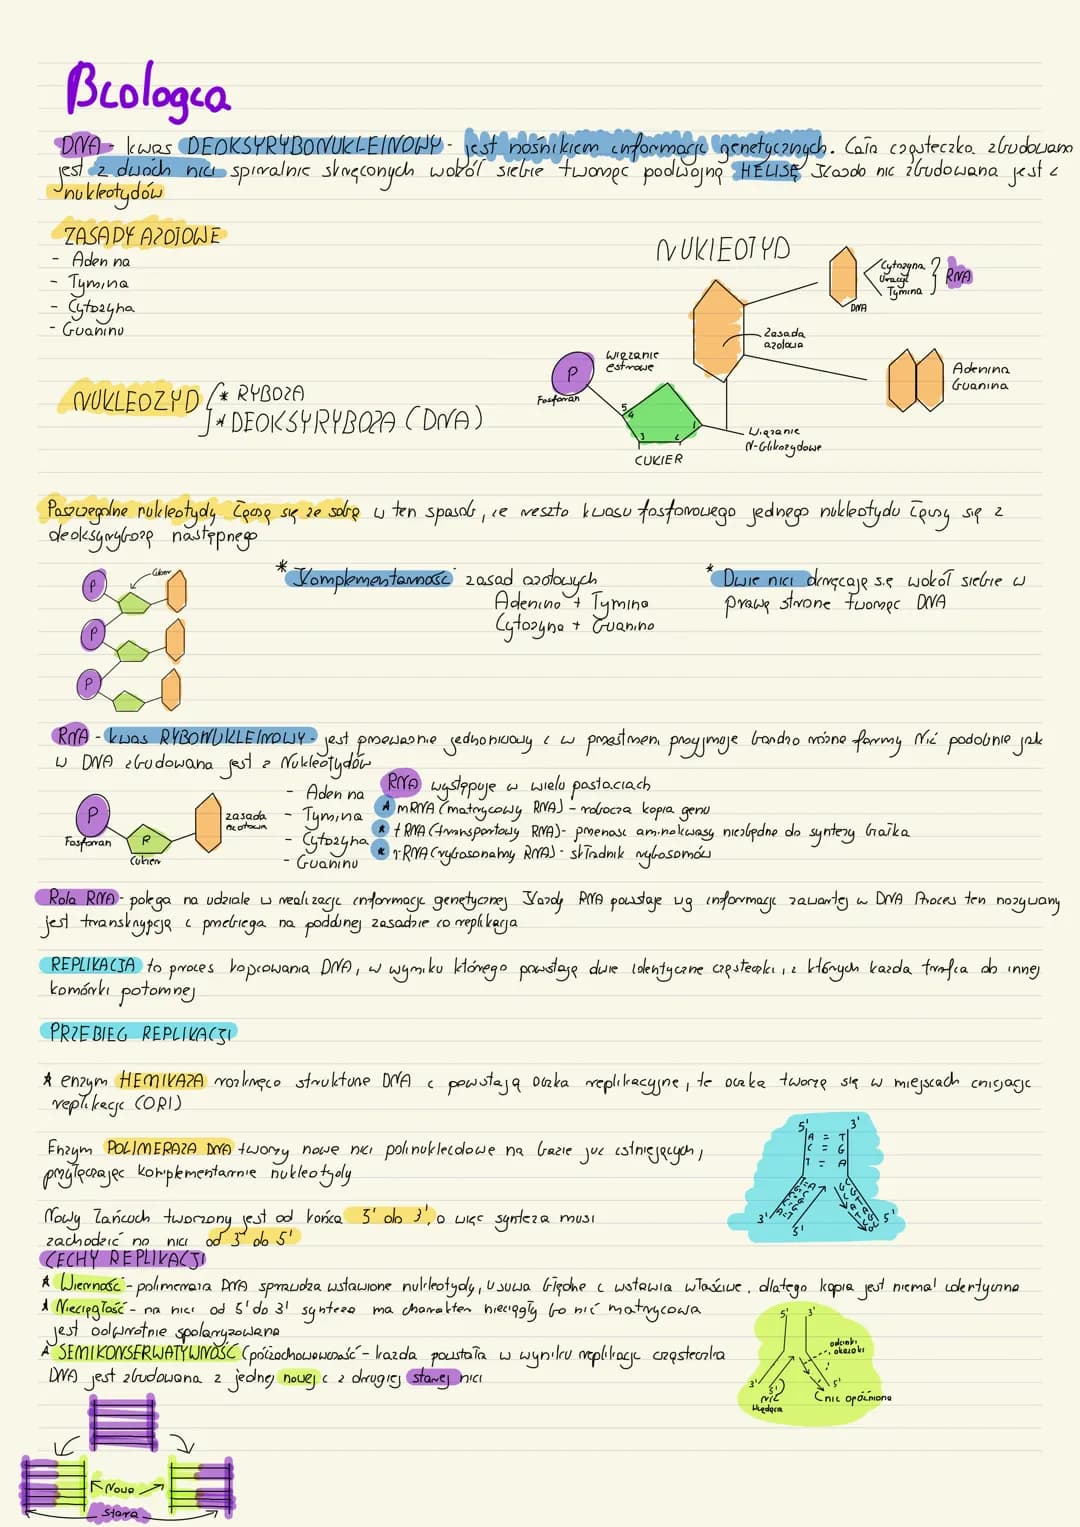 Biologia
DNA - kwas DEOKSYRYBONUKLEINOWY - jest nośnikiem informacji genetycznych. Cała cząsteczka zbudowana
jest z dwóch nici spiralnie skręconych wokół siebie tworząc podwójną HELISĘ Każda nić zbudowana jest z
nukleotydów
ZASADY AZOTOWE
- Adenina
- Tymina
- Cytozyna
- Guanina
NUKLEOTYD
Cytozyna
Uracyl
Tymina
RNA
DNA
Zasada
azotowa
Adenina
Guanina
Wiązanie
estrowe
P
Fosforan
5
4
3
2
1
CUKIER
Wiązanie
N-Glikozydowe
NUKLEOZYD
* RYBOZA
* DEOKSYRYBOZA (DNA)
Poszczególne nukleotydy łączą się ze sobą w ten sposób, że reszta kwasu fosforowego jednego nukleotydu łączy się z
deoksyrybozą następnego
P
P
P
Cukier
* Komplementarność zasad azotowych
Adenina + Tymina
Cytozyna + Guanina
* Dwie nici skręcają się wokół siebie w
prawą stronę tworząc DNA
RNA - kwas RYBONUKLEINOWY - jest przeważnie jednoniciowy i w przestrzeni przyjmuje bardzo różne formy Nić podobnie jak
w DNA zbudowana jest z Nukleotydów
P
Fosforan
R
Cukier
zasada
azotowa
- Adenina
- Tymina
- Cytozyna
- Guanina
RNA występuje w wielu postaciach
* mRNA (matrycowy RNA) - robocza kopia genu
* tRNA (transportowy RNA) - przenosi aminokwasy niezbędne do syntezy białka
* rRNA (rybosonalny RNA) - składnik rybosomów
Rola RNA - polega na udziale w realizacji informacji genetycznej Każdy RNA powstaje wg informacji zawartej w DNA Proces ten nazywany
jest transkrypcją i przebiega na podobnej zasadzie co replikacja
REPLIKACJA to proces kopiowania DNA, w wyniku którego powstają dwie identyczne cząsteczki, z których każda trafia do innej
komórki potomnej
PRZEBIEG REPLIKACJI
* enzym HEMIKAZA rozkręca strukturę DNA i powstają oczka replikacyjne, te oczka tworzą się w miejscach inicjacji
replikacji (ORI)
Enzym POLIMERAZA DNA tworzy nowe nici polinukleidowe na bazie już istniejących,
przyłączając komplementarnie nukleotydy
Nowy łańcuch tworzony jest od końca 5' do 3', a więc synteza musi
zachodzić na nici od 3' do 5'
5' 3'
A = T
C = G
T = A
3'
5'
5'
CECHY REPLIKACJI
* Wierność - polimeraza DNA sprawdza wstawione nukleotydy, usuwa błędne i wstawia właściwe, dlatego kopia jest niemal identyczna
* Nieciągłość - na nici od 5' do 3' synteza ma charakter nieciągły bo nić matrycowa
jest odwrotnie spolaryzowana
* SEMIKONSERWATYWNOŚĆ (półzachowawczość - każda powstała w wyniku replikacji cząsteczka
DNA jest zbudowana z jednej nowej i z drugiej starej nici
5' 3'
odcinki
okazaki
3'
5'
5'
nić
wiodąca
nić opóźniona
Nowa
Stara